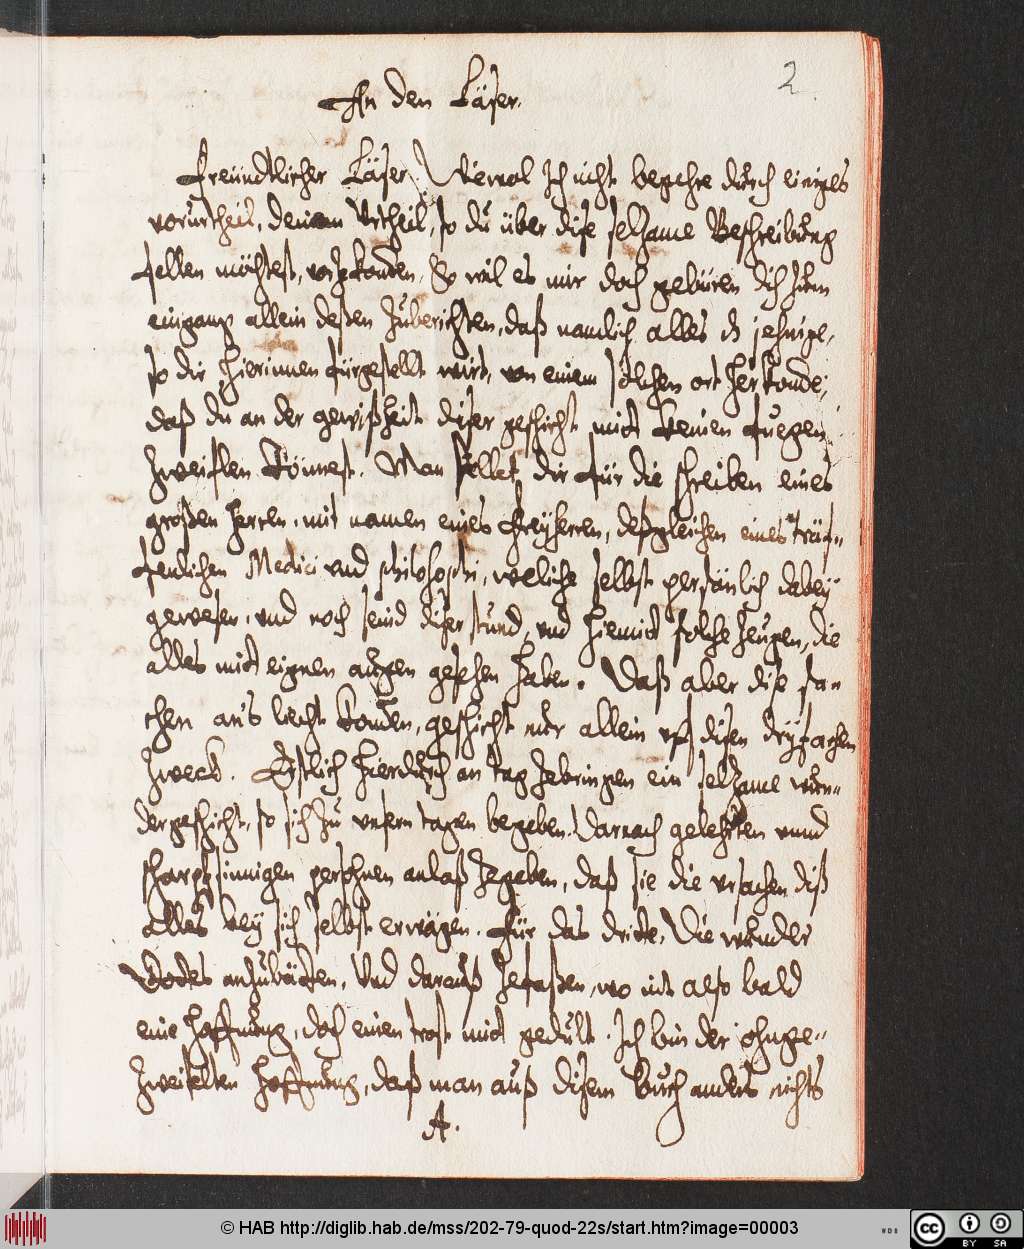 2.
An den Läser.
Freündtlicher Läser. Wiewol Ich nicht begehre dürch einiges
vorürtheil, deinem Vrtheil, so dü über dise selzame Beschreibüng
fellen möchtest, vorzekomen, So wil es mir doch gebüren dich Jnn
eingang allein deßen züberichten, daß namlich alles d jehnige,
so dir hierinnen fürgestellt wirt, von einem sölchen ort herkome,
daß du an der gewißheit diser geschicht mit keinen fuegen
zweiflen könnest. Man stellet dir für die schreiben eines
großen herren, mit namen eines freyherren, deßgleichen eines träf-
fenlichen Medici vnd philosophi, weliche selbst persönlich dabey
gewesen, vnd noch seind diser stund, vnd hiemit solche zeugen, die
alles mit eignen augen gesehen haben. Daß aber dise sa-
chen an's liecht komen, geschicht nür allein vff disen dryfachen
zweck. Erstlich hierdürch an tag zebringen ein selzame wun-
dergeschicht, so sich zü vnsern tagen begeben. Darnach gelehrten vnnd
scharpfsinnigen persohnen anlaß zegeben, daß sie die vrsachen diß
alles bey sich selbst erwägen. Für das dritte, Die wunder
Gottes anzubätten, Vnd darauß zefaßen, wo nit also bald
eine hoffnüng, doch einen trost mit gedült. Ich bin der ohnge-
zweifelten hoffnüng, daß man auß disem Büch anders nichts
A.
© HAB http://diglib.hab.de/mss/202-79-quod-22s/start.htm?image=00003
WDB
cc BY SA